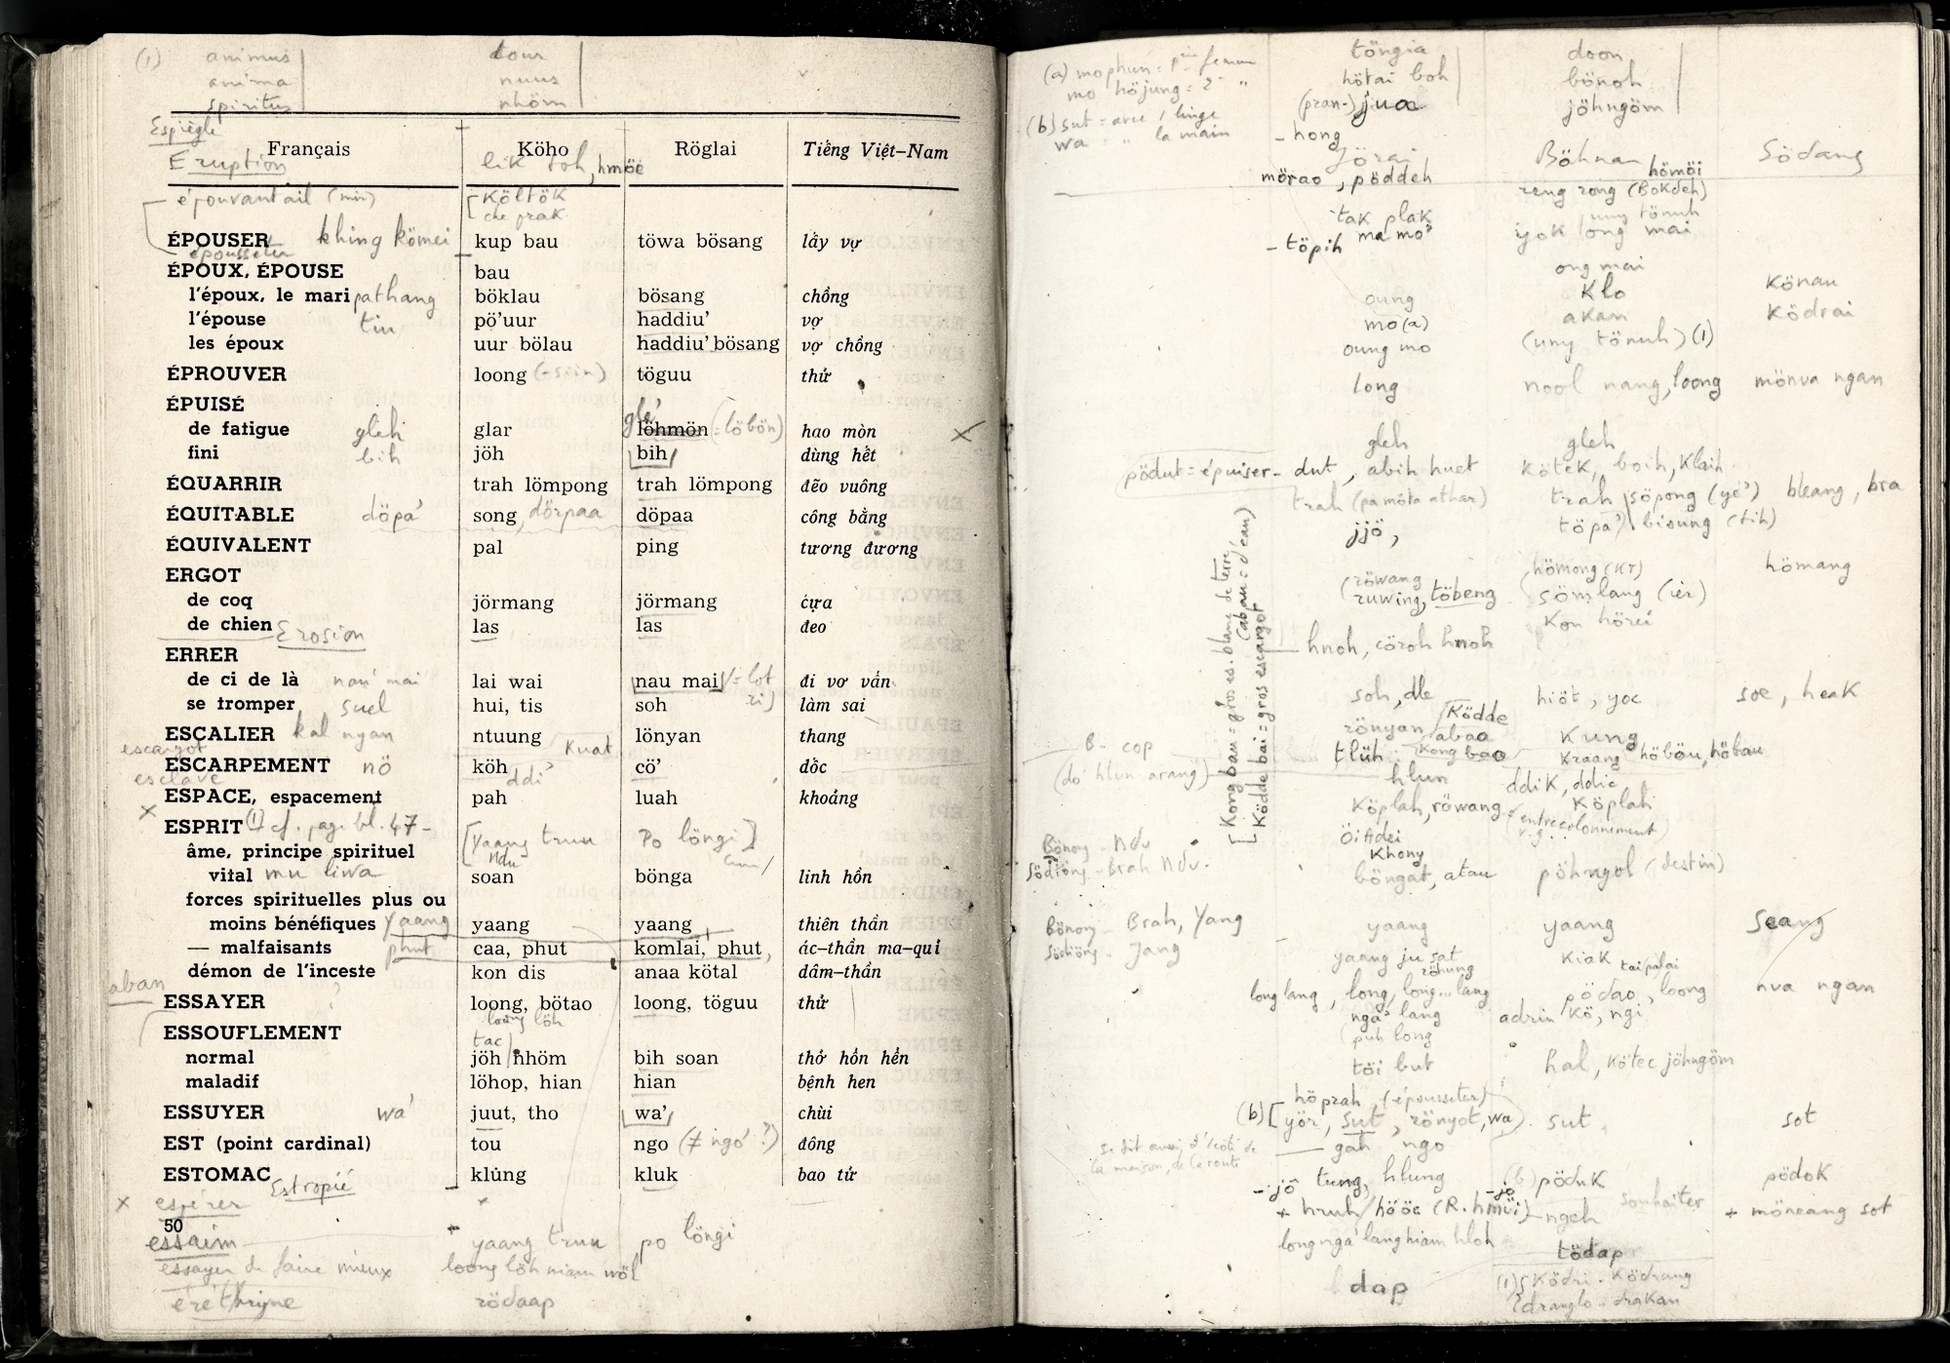 (1) animus tour
anima nuus
spiritus nhöm
Espiègle
Français Köho Röglai Tiếng Việt-Nam
Eruption lik toh, hmöi
épouvantail (mir) Költök
che prak
ÉPOUSER khing kömei kup bau töwa bösang lấy vợ
épousseter
ÉPOUX, ÉPOUSE bau
l'époux, le mari pathang böklau bösang chồng
l'épouse tiu pö'uur haddiu' vợ
les époux uur bölau haddiu' bösang vợ chồng
ÉPROUVER loong töguu thử
ÉPUISÉ
de fatigue gleh glar glé' löhmön (= löbön) hao mòn
fini bih jöh bih dùng hết
ÉQUARRIR trah lömpong trah lömpong đẽo vuông
ÉQUITABLE döpa' song, dörpaa döpaa công bằng
ÉQUIVALENT pal ping tương đương
ERGOT
de coq jörmang jörmang cựa
de chien las las đeo
Erosion
ERRER
de ci de là nau mai lai wai nau mai đi vơ vẩn
se tromper suel hui, tis soh làm sai
ESCALIER kal nyan ntuung lönyan thang
escargot Kuat
ESCARPEMENT nö köh cö' dốc
esclave ddi'
ESPACE, espacement pah luah khoảng
ESPRIT (1) cf. pag. bl. 47 - [Yaang truu Po löngi]
âme, principe spirituel Ndu
vital mu liwa soan bönga linh hồn
forces spirituelles plus ou
moins bénéfiques yaang yaang yaang thiên thần
— malfaisants phut caa, phut komlai, phut ác-thần ma-qui
démon de l'inceste kon dis anaa kötal dâm-thần
aban
ESSAYER loong, bötao loong, töguu thử
loong löh
ESSOUFLEMENT tac
normal jöh nhöm bih soan thở hổn hển
maladif löhop, hian hian bệnh hen
ESSUYER wa' juut, tho wa' chùi
EST (point cardinal) tou ngo (≠ ngo' ?) đông
ESTOMAC klủng kluk bao tử
Estropié
espérer
50
essaim yaang truu po löngi
essayer de faire mieux loong löh niam wöl
éréthryne rödaap
(a) mo phun = 1re femme töngia doon
mo höjung = 2e " hötai boh bönoh
(pran-) jua jöhngöm
(b) sut = avec 1 linge
wa = " la main
- hong
Jörai Böhnar Södang
mörao, pöddeh hömöi
reng rong (Bokdeh)
tak plak uny tönuh
- töpih ma mo' yok ong mai
ong mai
oung Klo Könau
mo (a) akan Ködrai
oung mo (uny tönuh) (1)
long nool nang, loong mönva ngan
gleh gleh
pödut = épuiser - dut, abih huet kötek, boih, klaih
trah (pa möta athar) trah söpong (yé') bleang, bra
töpa' bisung (tih)
jjö,
röwang hömong (KT) hömang
ruwing, töbeng sömlang (ièr)
Kon hörei
hnoh, cöroh hnoh
soh, dle hiöt, yoc soe, heak
rönyan Ködde Kung
abao
B- cop tlüh Kong bao Kraang höböu, höbau
(do' hlun arang) hlun ddik, ddic
Köplah, röwang Köplah
(entrecolonnement)
[Kong bau = gros es. blanc de terre
(abau = d'eau)
Ködde bai = gros escargot
Öi Adei
Bönong - Ndu Khony
Södiöng - Brah Ndu. böngat, atau pöhngol (destin)
Bönong - Brah, Yang yaang yaang Seang
Södiöng - Jang
yaang ju sat Kiak tai palai
röhung
long lang, long, long... lang pödao, loong nva ngan
nga' lang adrin kö, ngi
puh long
töi but hal, kötec jöhngöm
höprah (épousseter)
(b) [yör, sut, rönyot, wa) sut sot
gah ngo
se dit aussi d'1 côté de
la maison, de la route
- jö tung, hlung (b) pöduk pödok
+ hruh/höoc (R. hmüi) ngeh souhaiter + möneang sot
long nga' lang hiam hloh
tödap
dap (1) Ködri - Ködrang
dranglo - drakan